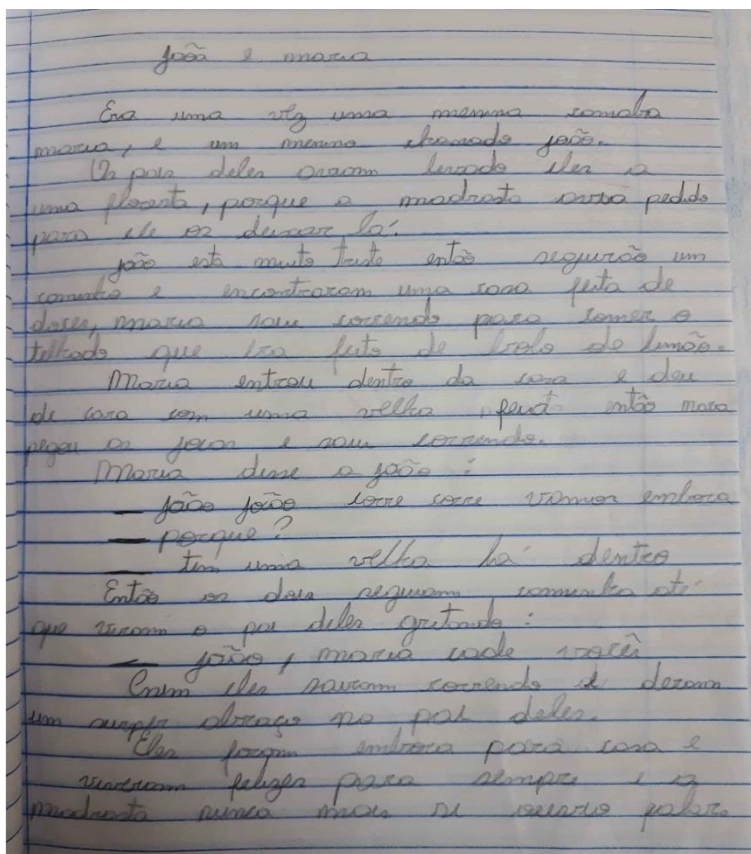 João e maria
Era uma vez uma menina
maria, e um menino chamado joão.
Os pais deles aviam levado eles a
uma floresta, porque a madrasta avia pedido
para ele os deixar lá.
joão está muito triste então seguirão um
caminho e encontraram uma casa feita de
doces, maria saiu correndo para comer o
telhado que era feito de bolo de limão.
Maria entrou dentro da casa e deu
de cara com uma velha então
pegou as joias e saiu correndo.
Maria disse a joão :
— joão joão corre corre vamos embora
— porque?
— tem uma velha lá dentro
Então os dois seguiram caminho até
que viram o pai deles gritando :
— joão, maria cade você
Enim eles sairam correndo e deram
um abraço no pai deles.
Eles foram embora para casa e
viveram felizes para sempre e a
madrasta nunca mais se ouviu falar.